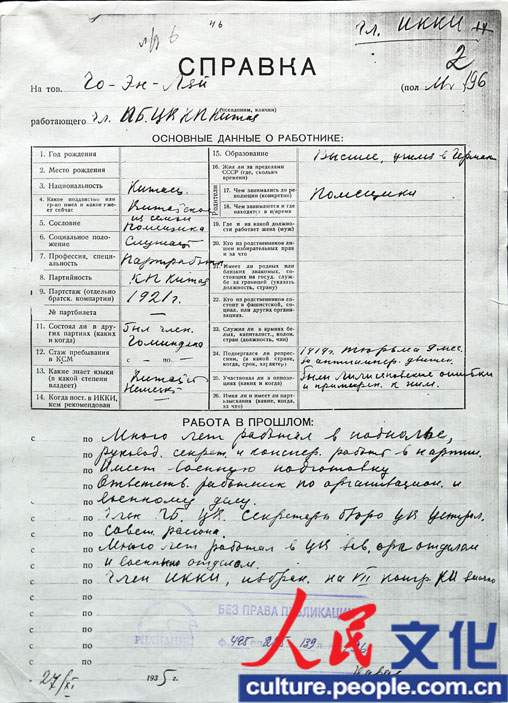 Чл. ИККИ
СПРАВКА
2
На тов. Чо-Эн-Лай (пол М. 196
работающего Чл. П.Б. ЦК КП Китая (псевдоним, клички)
ОСНОВНЫЕ ДАННЫЕ О РАБОТНИКЕ:
1. Год рождения
2. Место рождения
3. Национальность Китаец
4. Какое подданство или гр-во имел и какое имеет сейчас Китайское
5. Сословие из семьи помещика
6. Социальное положение Служащ.
7. Профессия, специальность Партработн
8. Партийность КП Китая
9. Партстаж (отдельно братск. компартии) 1921 г.
№ партбилета
11. Состоял ли в других партиях (каких и когда) был член. Гоминдана
12. Стаж пребывания в КСМ с — по —
13. Какие знает языки (в какой степени владеет) Китайск Немецк
14. Когда пост. в ИККИ, кем рекомендован
15. Образование Высшее, учился в Герман
16. Жил ли за пределами СССР (где, сколько времени)
Родители
17. Чем занимались до революции (конкретно) Помещики
18. Чем занимаются и где находятся в н/время
19. Где и на какой должности работает жена (муж)
20. Кто из родственников лишен избирательных прав и за что
21. Имеет ли родных или близких знакомых, состоящих на госуд. службе за границей (указать должность, страну)
22. Кто из родственников состоит в фашистской, социал. или других организациях.
23. Служил ли в армиях белых, капиталист., колон. стран (должность, чин)
24. Подвергался ли репрессиям, (в какой стране, когда, срок, характер) 1919 г. тюрьма 9 мес. за антиимпер. движен.
25. Участвовал ли в оппозициях (каких и когда) были Лилисяновские ошибки и примирен. к ним.
26. Имел и имеет ли партвзыскания (какие, когда, за что)
РАБОТА В ПРОШЛОМ:
с по Много лет работал в подполье,
с по руковод. секрет. и конспир. работ в партии.
с по Имеет военную подготовку
с по Ответств. работник по организацион. и
с по военному делу.
с по Член ПБ. ЦК. Секретарь бюро ЦК централ.
с по Совет. района.
с по Много лет работал в ЦК зав. орг отделам
с по и военным отделам.
с по Член ИККИ, избран. на VII конгр. КИ
с по
БЕЗ ПРАВА ПУБЛИКАЦИИ
Ф. 495 139
27/XI 1935 г.
人民文化
culture.people.com.cn